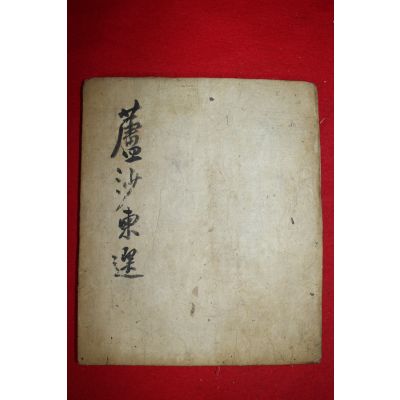 蘆沙東選